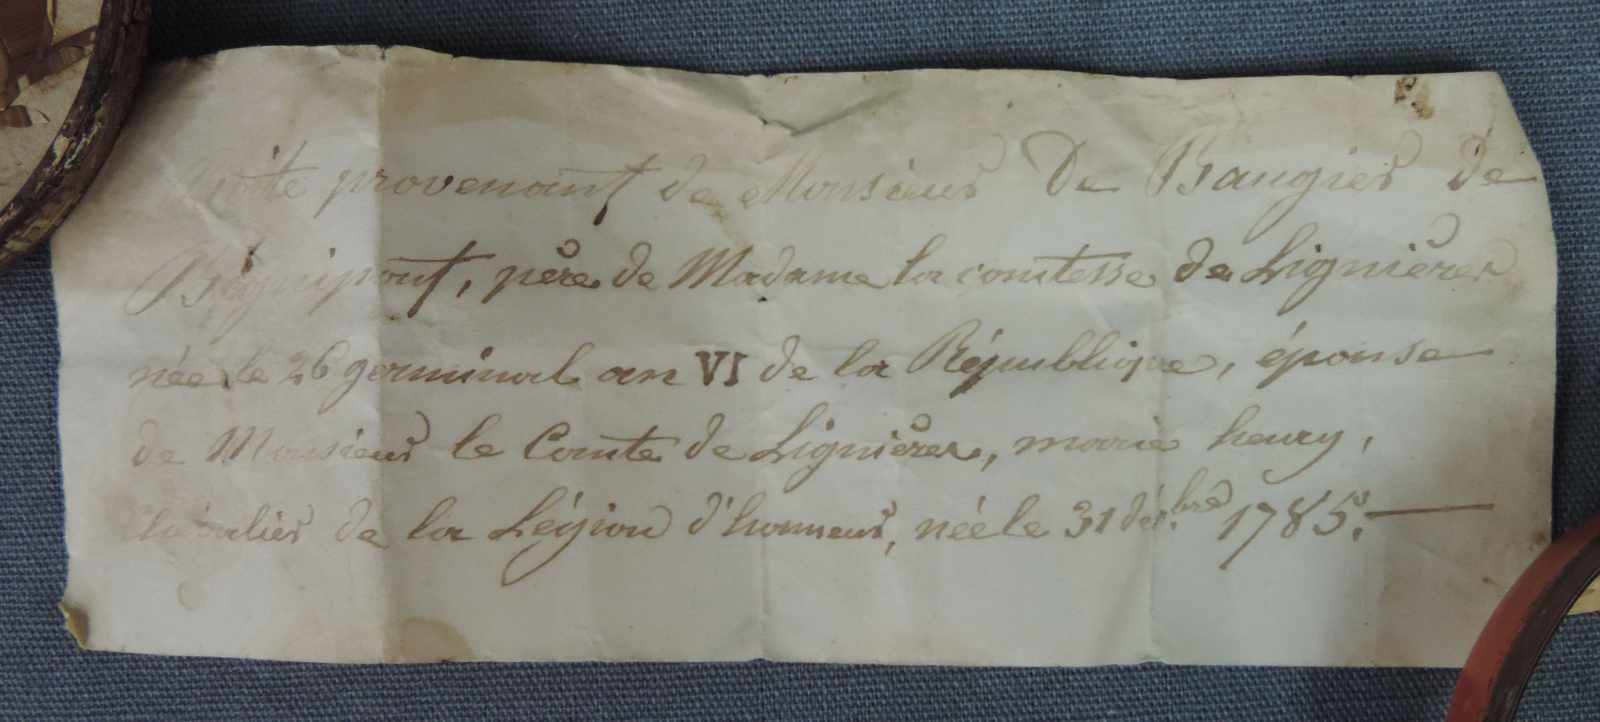 Boîte provenant de Monsieur De Baugier de
Bignipont, père de Madame la comtesse de Lignières
née le 26 germinal an VI de la République, épouse
de Monsieur le Comte de Lignières, marie henry,
Chevalier de la Légion d'honneur, née le 31 décbre 1785.